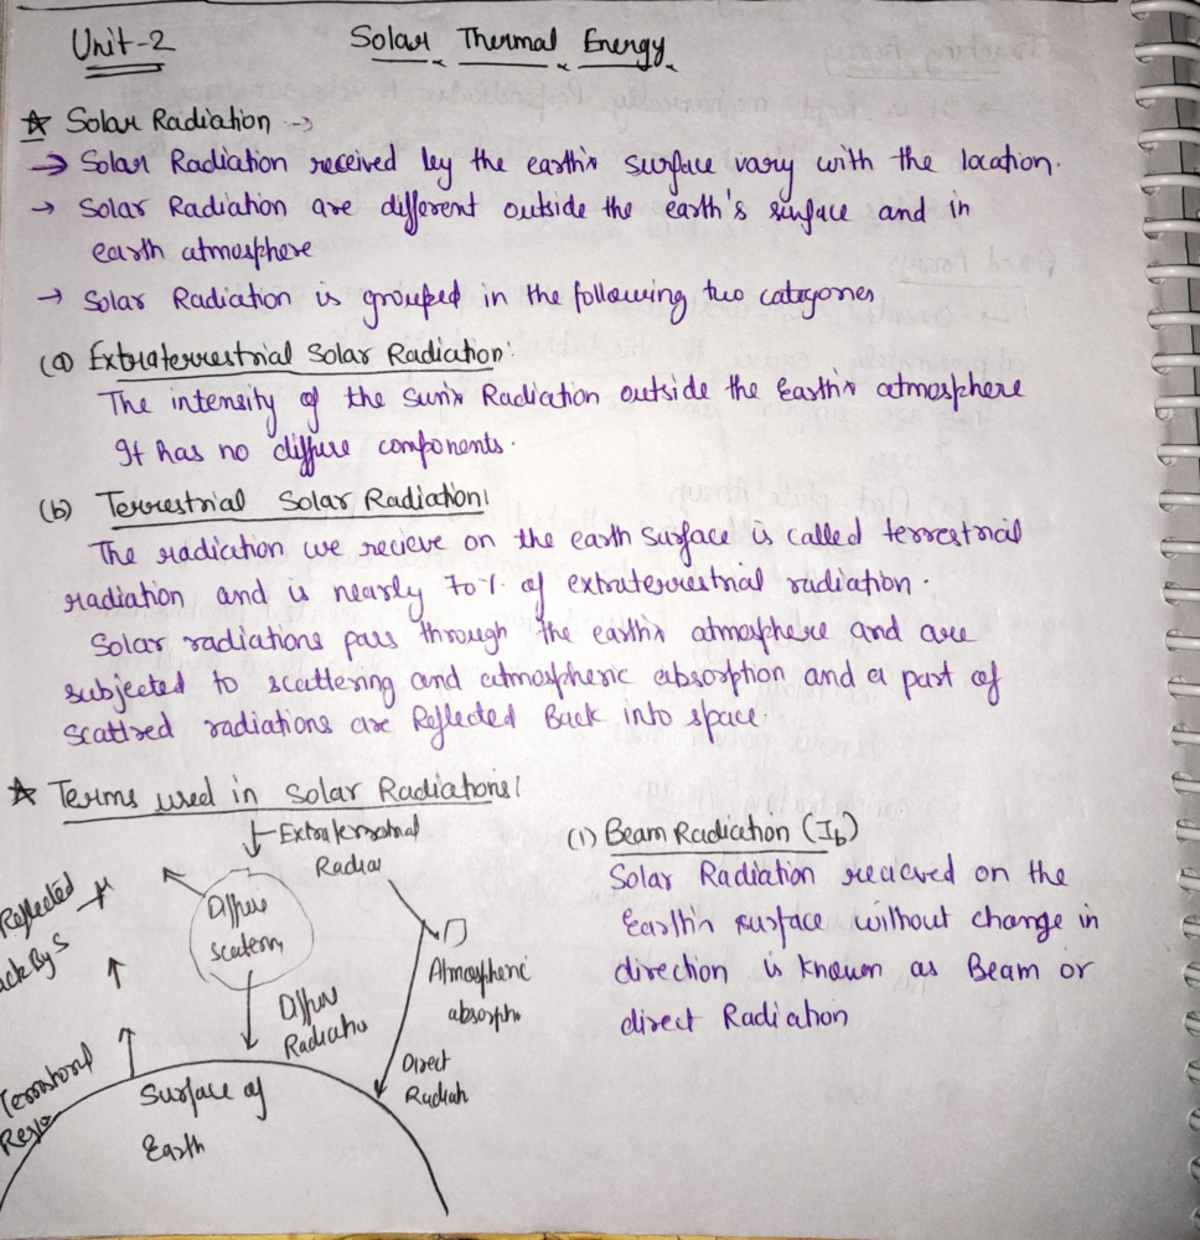 Unit-2 Solar Thermal Energy
☆ Solar Radiation →
→ Solar Radiation received by the earth's surface vary with the location.
→ Solar Radiation are different outside the earth's surface and in
earth atmosphere
→ Solar Radiation is grouped in the following two categories
(a) Extraterrestrial Solar Radiation:
The intensity of the sun's Radiation outside the Earth's atmosphere
It has no diffuse components.
(b) Terrestrial Solar Radiation:
The radiation we recieve on the earth surface is called terrestrial
radiation and is nearly 70% of extraterrestrial radiation.
Solar radiations pass through the earth's atmosphere and are
subjected to scattering and atmospheric absorption and a part of
scattred radiations are Reflected Back into space.
☆ Terms used in Solar Radiations:
Extraterrestrial
Radia
Reflected
ack By S
Diffuse
scattern
Diffuse
Radiatio
Atmospheric
absorptio
Direct
Radiati
Terrestorial
Regio
Surface of
Earth
(1) Beam Radiation (Ib)
Solar Radiation reacived on the
Earth's surface without change in
direction is known as Beam or
direct Radiation